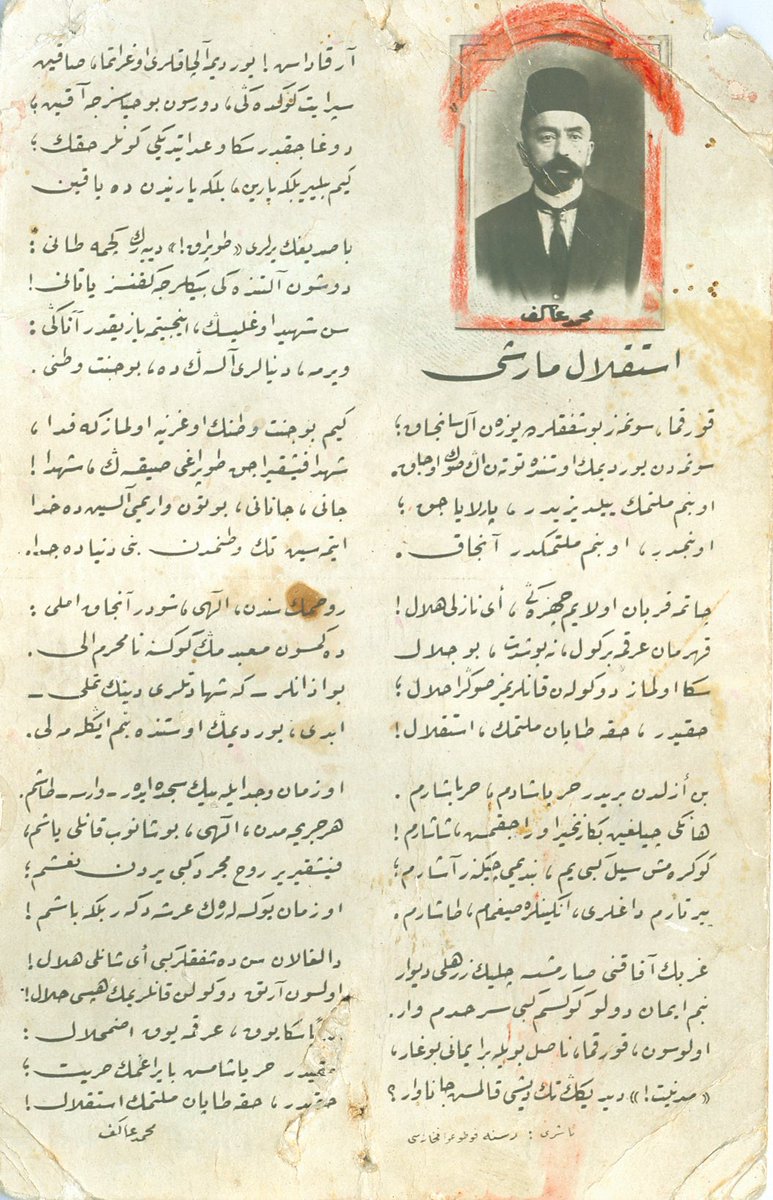 محمد عاكف
استقلال مارشى
قورقما، سونمز بو شفقلرده يوزن آل سانجاق؛
سونمه دن يورديمك اوستنده توتن اڭ صوڭ اوجاق.
او بنم ملتمك ييلديزيدر، پارلاياجق؛
او بنمدر، او بنم ملتمكدر آنجاق.
چاتمه قربان اولايم چهره ڭى، أى نازلى هلال!
قهرمان عرقمه بركول، نه بو شدت، بو جلال
سكا اولماز دوكولن قانلريمز صوڭرا حلال؛
حقيدر، حقه طاپان ملتمك، استقلال!
بن أزلدن بريدر حر ياشادم، حر ياشارم.
هانكى چيلغين بكا زنجير اوراجقمش، شاشارم!
كوكره مش سيل كبى يم، بنديمى چيكنر آشارم؛
ييرتارم داغلرى، انكينلره صيغمام، طاشارم.
غربك آفاقنى صارمشسه چليك زرهلى ديوار
بنم ايمان دولو كوكسم كبى سرحدم وار.
اولوسون، قورقما، ناصل بويله بر ايمانى بوغار،
«مدنيت!» ديديكك تك ديشى قالمش جاناوار؟
ناشرى:
آرقاداش! يورديمه آلچاقلرى اوغراتما، صاقين
سپر ايت كوكده ڭى، دورسون بو حياسزجه آقين؛
دوغاجقدر سكا وعد ايتديكى كونلر حقك؛
كيم بيلير بلكه يارين، بلكه ياريندن ده ياقين
باصديغك يرلرى «طوپراق!» ديه رك كچمه طانى:
دوشون آلتنده كى بيكلرجه كفنسز ياتانى!
سن شهيد اوغليسڭ، اينجيتمه يازيقدر آتاڭى:
ويرمه، دنيالرى آلسه ڭ ده، بو جنت وطنى.
كيم بو جنت وطنك اوغرينه اولماز كه فدا،
شهدا فيشقيراجق طوپراغى صيقسه ڭ، شهدا!
جانى، جانانى، بوتون واريمى آلسين ده خدا
ايتمه سين تك وطنمدن بنى دنياده جدا.
روحمك سندن، الهى، شودر آنجاق املى:
دكمسون معبدمڭ كوكسنه نامحرم الى.
بو اذانلر ـ كه شهادتلرى دينك تملى ـ
ابدى، يورديمڭ اوستنده بنم ايكله مه لى.
او زمان وجد ايله بيك سجده ايدر ـ وارسه ـ طاشم.
هر جريحه مدن، الهى، بوشانوب قانلى ياشم،
فيشقيرير روح مجرد كبى يردن نعشم؛
او زمان يوكسه له رك عرشه دكر بلكه باشم!
دالغالان سن ده شفقلر كبى أى شانلى هلال!
اولسون آرتق دوكولن قانلريمك هپسى حلال!
سكا يوق، عرقمه يوق اضمحلال:
حقيدر حر ياشامش بايراغمك حريت؛
حقيدر، حقه طاپان ملتمك استقلال!
محمد عاكف